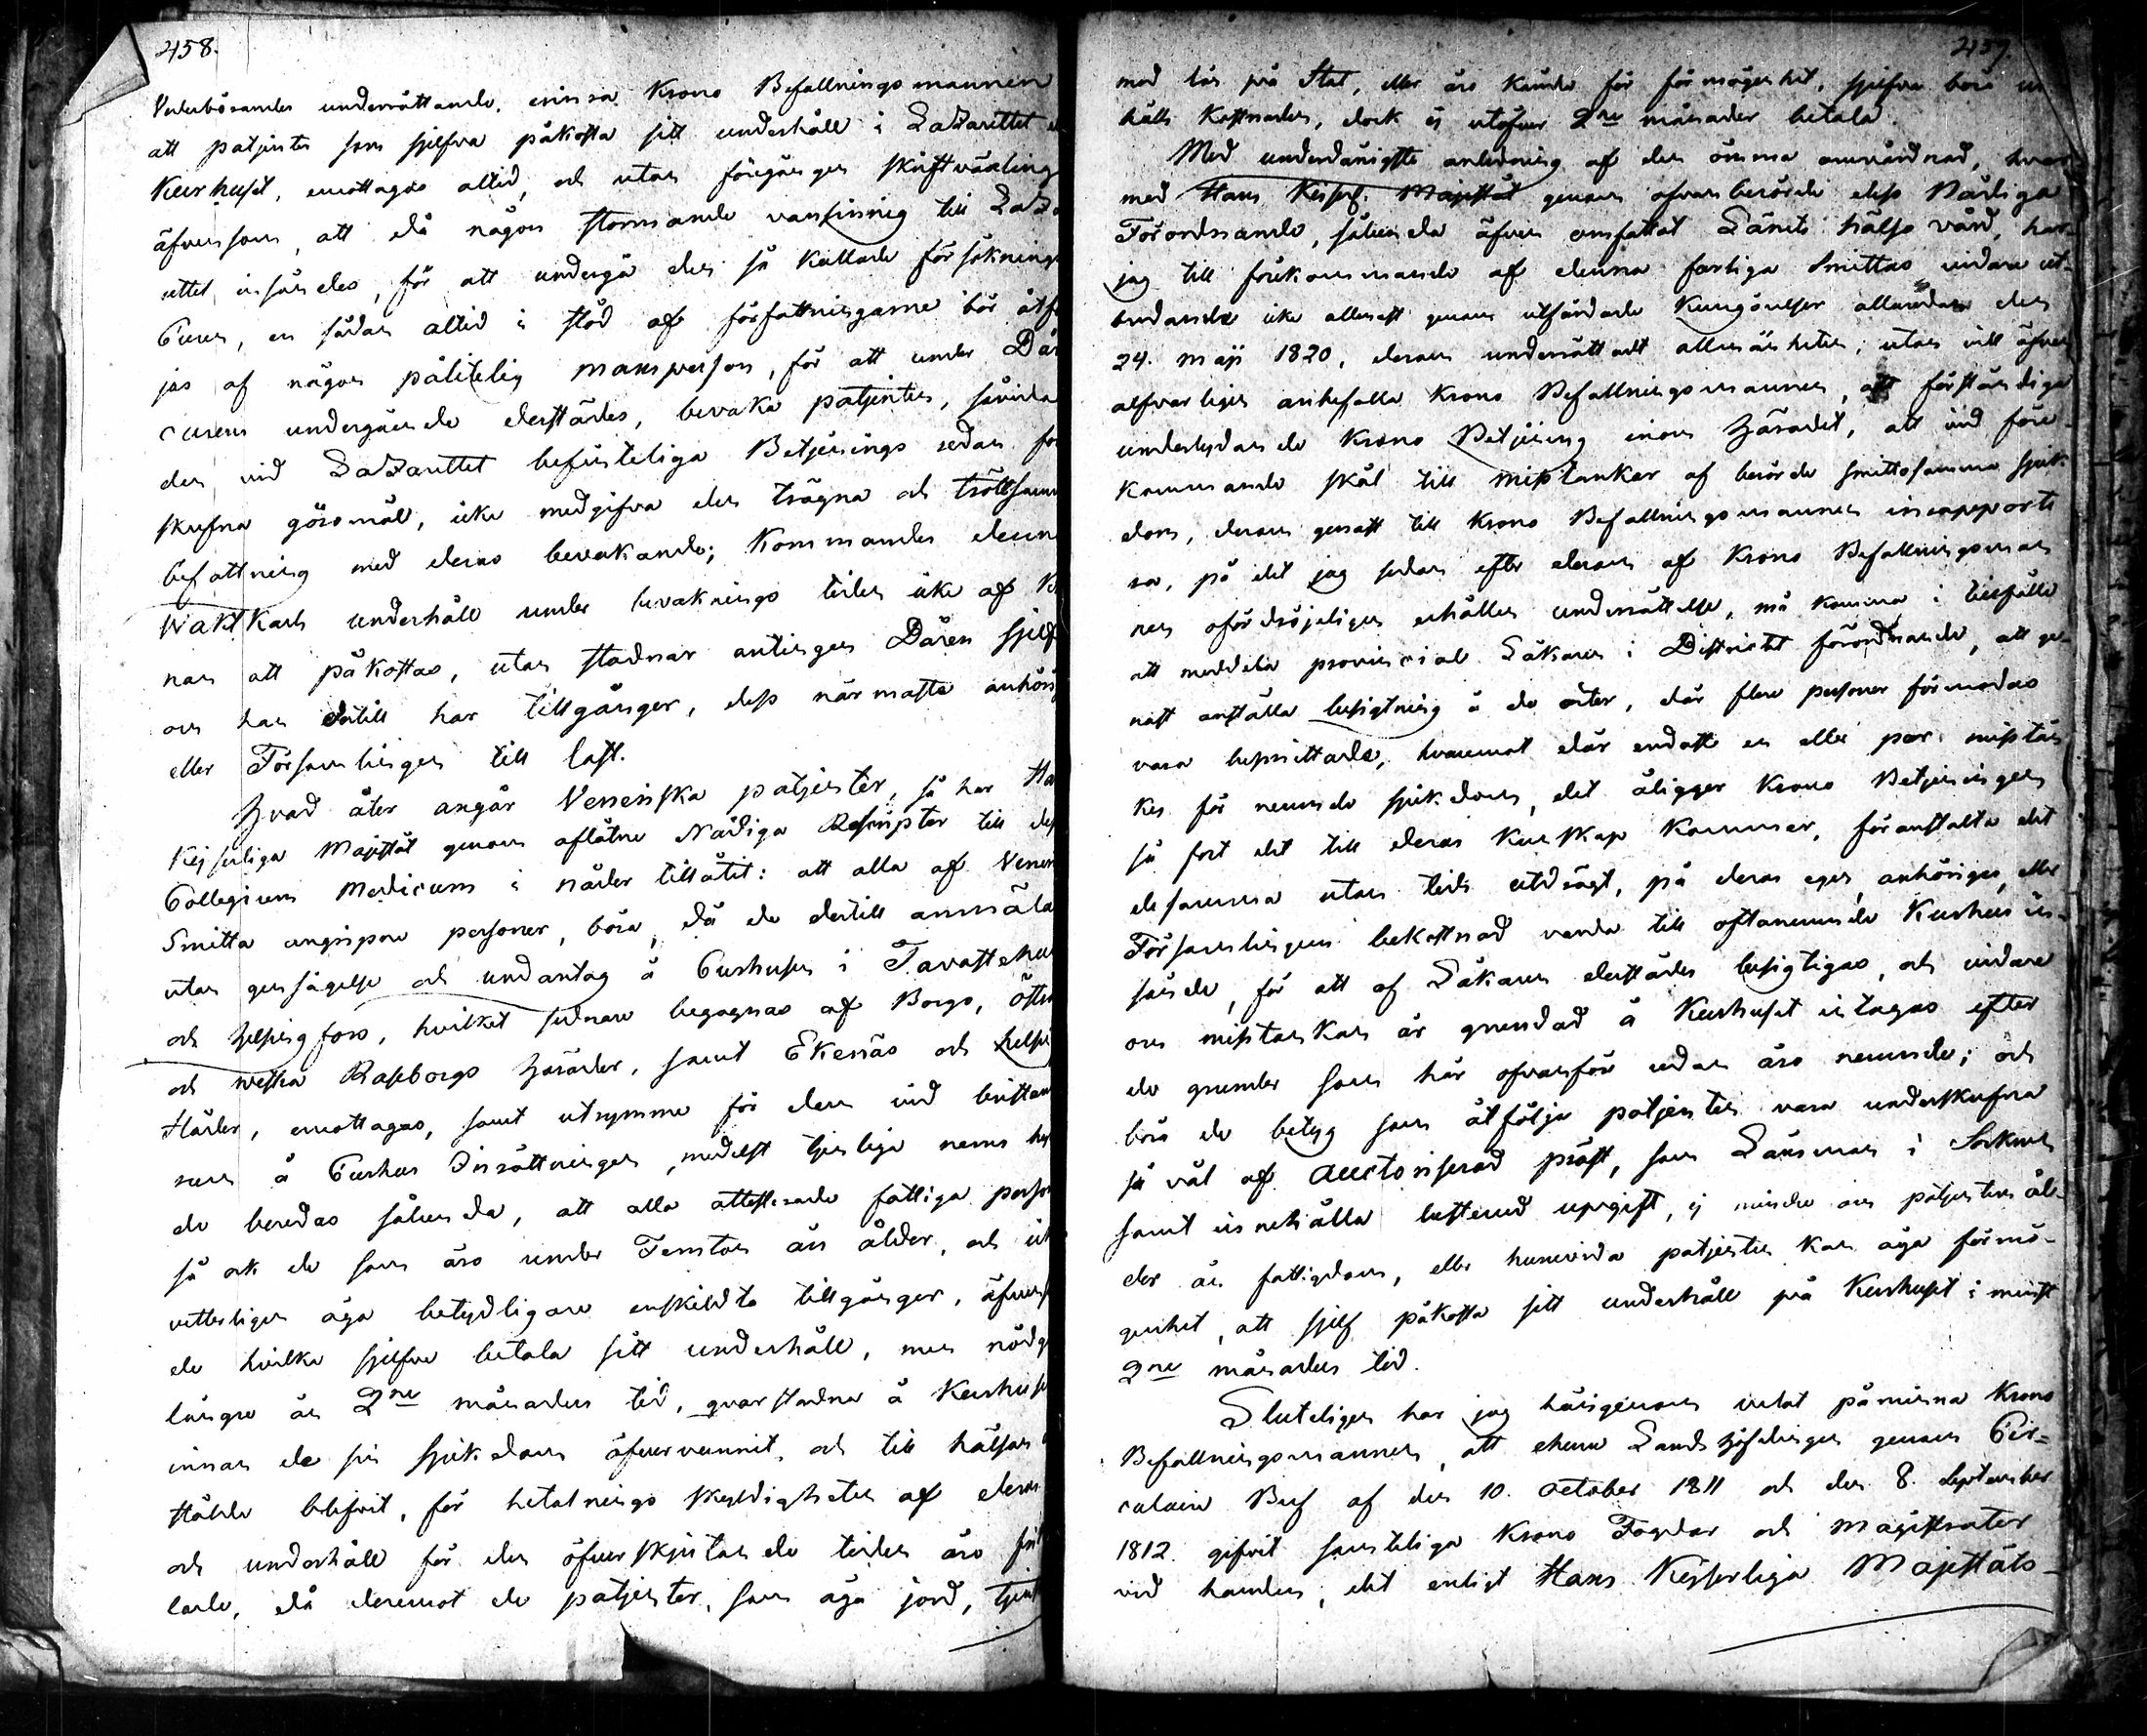 458.
Vederbörandes underrättande, erinra Krono Befallningsmannen
att patjenter som sjelfva påkosta sitt underhåll i Lazarettet
Kurhuset, emottagas altid, och utan föregången skriftväxling
äfvensom, att då någon stormande vansinnig till Laza
rettet insändes, för att undergå den så kallade försöknings
Curen, en sådan altid i stöd af författningarne bör åtföl
jas af någon pålitelig mansperson, för att under Dår
curens undergående derstädes, bevaka patjenten, såvida
den vid Lazarettet befinteliga Betjenings redan före
skrefna göromål, icke medgifva den trägna och tröttsamma
befattning med deras bevakande; Kommandes denna
Wakt Karls underhåll under bevaknings tiden icke af Kro
nan att påkostas, utan stadnar antingen Dåren sjelf
om han dertill har tillgångar, dess närmaste anhörig
eller Församlingen till last.
Hvad åter angår Veneriska patjenter, så har Hans
Kejserliga Majestät genom aflåtne Nådiga Rescripter till dess
Collegium Medicum i nåder tillåtit: att alla af Venerisk
Smitta angripne personer, böra, då de dertill anmäla
utan gensägelse och undantag å Curhusen i Tavastehus
och Helsingfors, hvilket sednare begagnas af Borgo, östra
och westra Raseborgs Härader, samt Ekenäs och Helsing
Städer, emottagas, samt utrymme för dem vid bristande
rum å Curhus Inrättningen, medelst tjenliga rums hyr
de beredas sålunda, att alla attesterade fattiga personer
så ock de som äro under Femton års ålder, och icke
vetterligen äga betydligare enskildta tillgångar, äfvensom
de hvilka sjelfva betala sitt underhåll, men nödgas
längre än 2ne månaders tid, qvarstadna å Kurhuset
innan de sin sjukdom öfvervunnit, och till hälsan
stälde blifvit, för betalnings skyldigheten af deras
och underhåll för den öfverskjutande tiden äro frikal
lade, då deremot de patjenter, som äga jord, tjenst
459.
med lön på Stat, eller äro kände för förmögenhet, sjelfva böra un
hålls Kostnaden, dock ej utöfver 2ne månader betala.
Med underdånigste anledning af den ömma omvårdnad, hvar
med Hans Kejserl. Majestät genom ofvanberörde dess Nådiga
Förordnande, sålunda äfven omfattat Länets hälso vård, har
jag till förekommande af denna farliga Smittas vidare ut-
bredande icke allenast genom utfärdade Kungörelser allaredan den
24. Maji 1820, derom underrättadt allmänheten, utan vill äfven
alfvarligen anbefalla Krono Befallningsmannen, att förständiga
underlydande Krono Betjening inom Häradet, att vid före-
kommande skäl till misstankar af berörde smittosamma sjuk-
dom, derom genast till Krono Befallningsmannen inrapporte
ra, på det jag sedan efter derom af Krono Befallningsman
nen ofördröjeligen erhållen underrättelse, må komma i tillfälle
att meddela provincial Läkaren i Districtet förordnande, att ge-
nast anställa besigtning å de orter, där flere personer förmodas
vara besmittade, hvaremot där endast en eller par misstän
kes för nemnde sjukdom, det åligger Krono Betjeningen
så fort det till deras Kunskap Kommer, föranstalta det
desamma utan tids utdrägt, på deras egen, anhöriges, eller
Församlingens bekostnad varda till oftanemnde Kurhus in-
sände, för att af Läkaren derstädes besigtigas, och vidare
om misstankan är grundad å Kurhuset intagas efter
de grunder som här ofvanföre redan äro nemnde; och
böra de betyg som åtfölja patjenten vara underskrefna
så väl af auctoriserad präst, som Länsman i Socknen
samt innehålla bestämd uppgift, ej mindre om patjentens ål-
der än fattigdom, eller huruvida patjenten kan äga förmö-
genhet, att sjelf påkosta sitt underhåll på Kurhuset i minst
2ne månaders tid.
Sluteligen har jag härigenom velat påminna Krono
Befallningsmannen, att ehuru Landshöfdingen genom Cir-
culaire Bref af den 10. October 1811 och den 8. September
1812 gifvit samteliga Krono Fogdar och Magistrater
vid handen, det enligt Hans Kejserliga Majestäts-